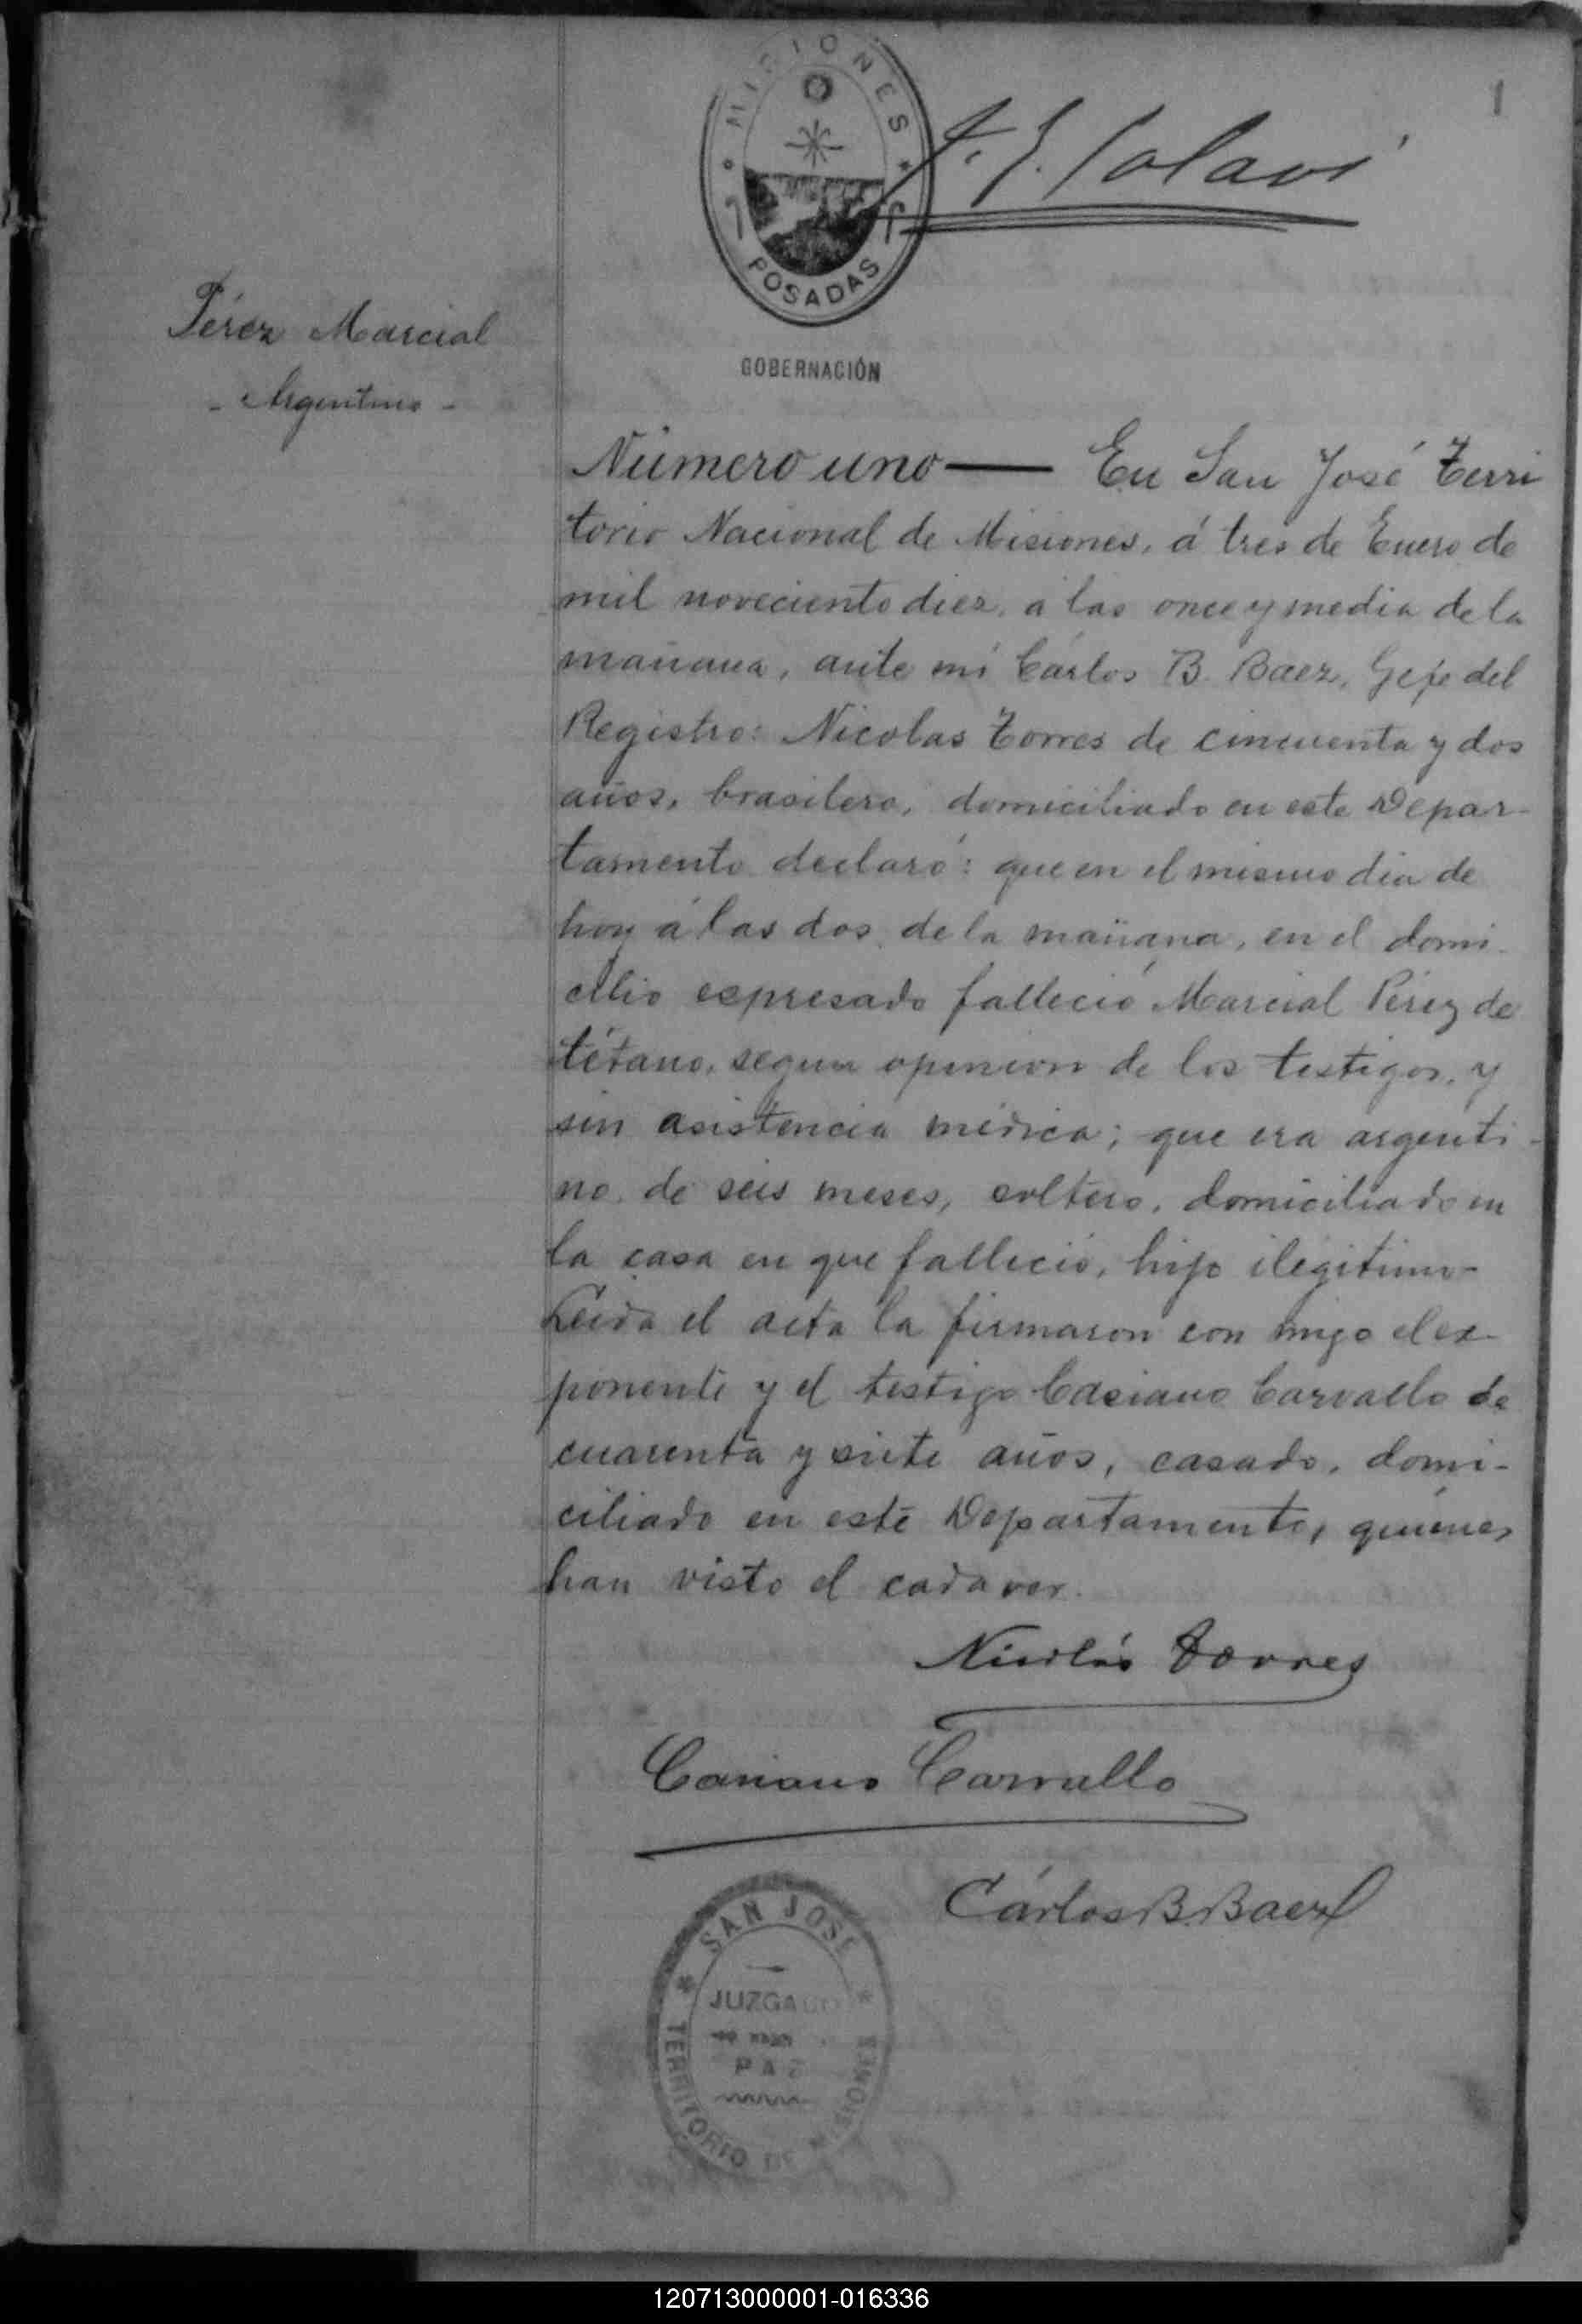 1
MISIONES
POSADAS
GOBERNACIÓN
Pérez Marcial
- Argentino -
Número uno — En San José Terri
torio Nacional de Misiones, á tres de Enero de
mil noveciento diez, á las once y media de la
mañana, ante mí Cárlos B. Baez, Gefe del
Registro: Nicolas Torres de cincuenta y dos
años, brasilero, domiciliado en este Depar-
tamento declaró: que en el mismo dia de
hoy á las dos de la mañana, en el domi-
cilio espresado falleció Marcial Pérez de
tétano, segun opinion de los testigos, y
sin asistencia médica; que era argenti-
no de seis meses, soltero, domiciliado en
la casa en que falleció, hijo ilegitimo-
Leida el acta la firmaron con migo el ex-
ponente y el testigo Casiano Carvallo de
cuarenta y siete años, casado, domi-
ciliado en este Departamento, quienes
han visto el cadaver.
Nicolás Torres
Casiano Carvallo
Cárlos B Baez
SAN JOSE
JUZGADO
PAZ
TERRITORIO DE MISIONES
120713000001-016336